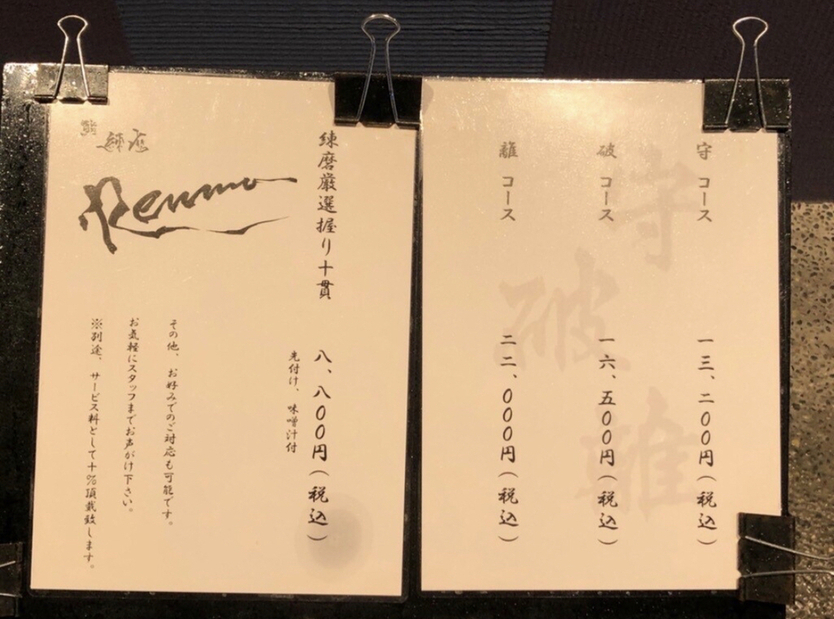 守 コース 一三、二〇〇円(税込)
破 コース 一六、五〇〇円(税込)
離 コース 二二、〇〇〇円(税込)
守
破
離
練磨厳選握り十貫 八、八〇〇円(税込)
先付け、味噌汁付
その他、お好みでのご対応も可能です。
お気軽にスタッフまでお声がけ下さい。
※別途、サービス料として十%頂戴致します。
鮨 練磨
Renma